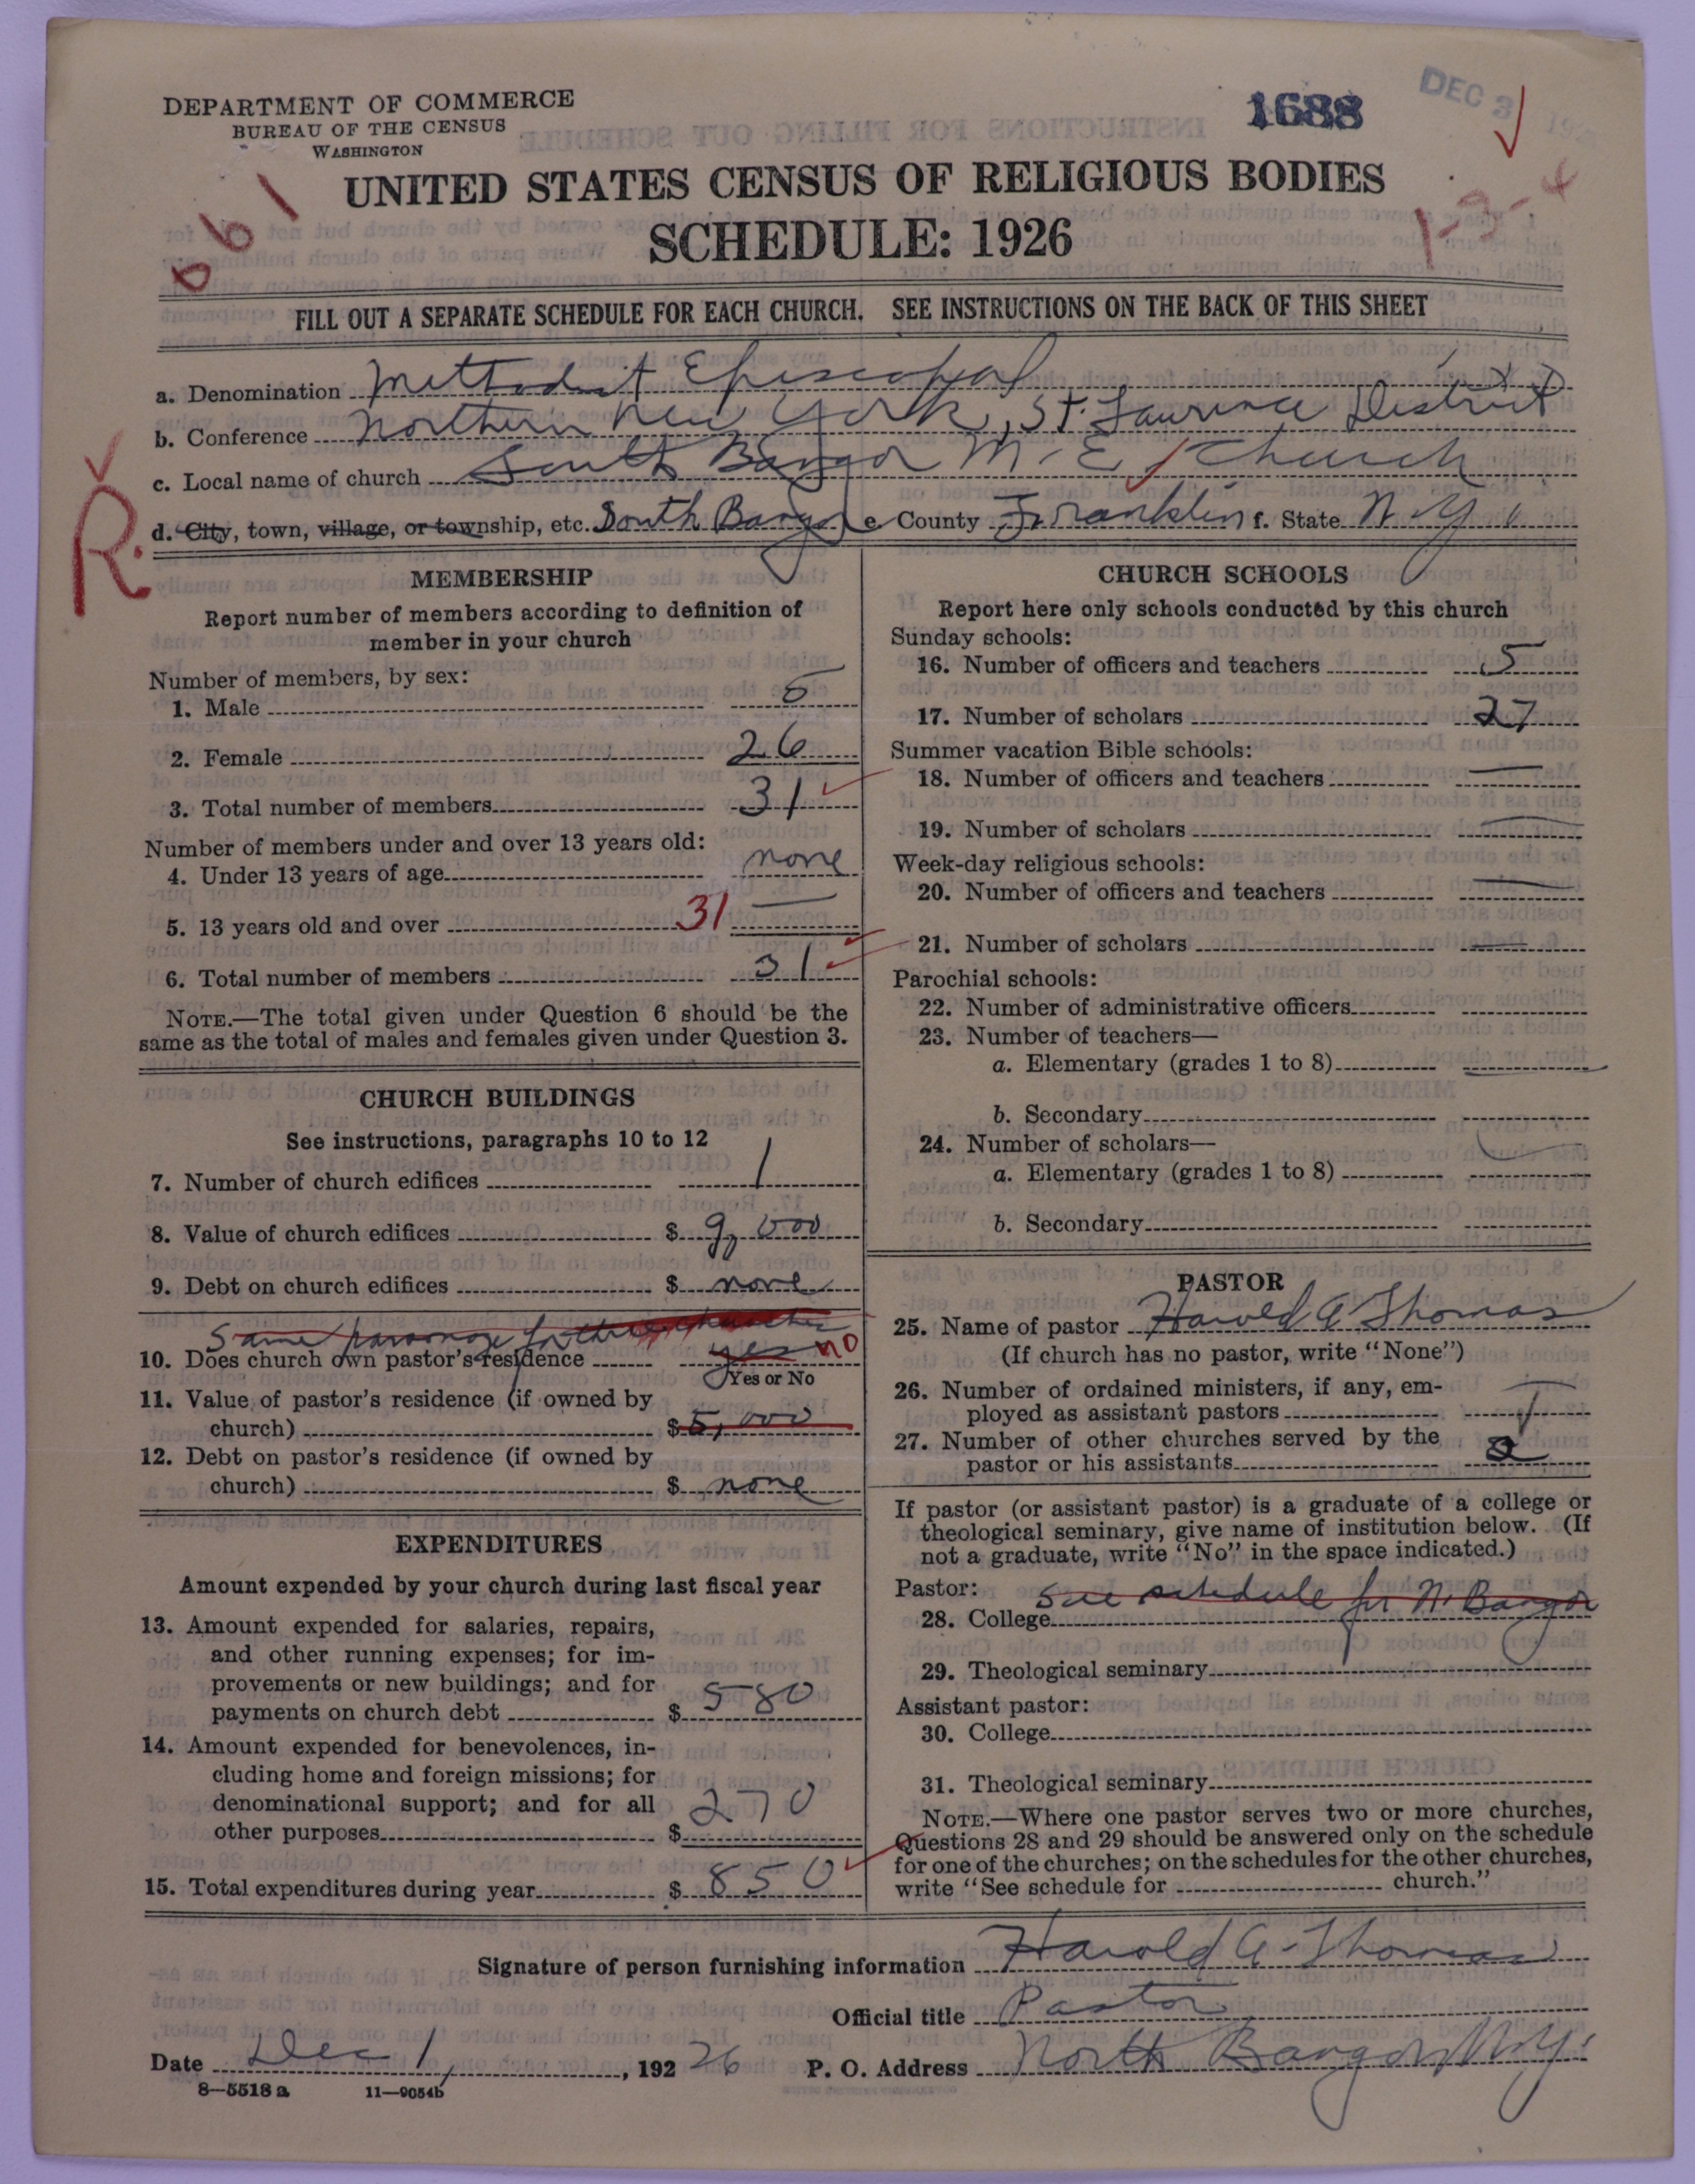 DEPARTMENT OF COMMERCE
BUREAU OF THE CENSUS
WASHINGTON
1688
DEC 3
061
UNITED STATES CENSUS OF RELIGIOUS BODIES
1-3-4
SCHEDULE: 1926
FILL OUT A SEPARATE SCHEDULE FOR EACH CHURCH. SEE INSTRUCTIONS ON THE BACK OF THIS SHEET
a. Denomination Methodist Episcopal
b. Conference Northern New York, St. Lawrence District
c. Local name of church South Bangor M. E. Church
R.
d. City, town, village, or township, etc. South Bangor e County Franklin f. State N. Y.
MEMBERSHIP
Report number of members according to definition of
member in your church
Number of members, by sex:
1. Male 5
2. Female 26
3. Total number of members 31
Number of members under and over 13 years old:
4. Under 13 years of age none
5. 13 years old and over 31 —
6. Total number of members 31
NOTE.—The total given under Question 6 should be the
same as the total of males and females given under Question 3.
CHURCH BUILDINGS
See instructions, paragraphs 10 to 12
7. Number of church edifices 1
8. Value of church edifices $ 9,000
9. Debt on church edifices $ none
Same parsonage for three churches
10. Does church own pastor's residence yes no
Yes or No
11. Value of pastor's residence (if owned by
church) $ 5,000
12. Debt on pastor's residence (if owned by
church) $ none
EXPENDITURES
Amount expended by your church during last fiscal year
13. Amount expended for salaries, repairs,
and other running expenses; for im-
provements or new buildings; and for
payments on church debt $ 580
14. Amount expended for benevolences, in-
cluding home and foreign missions; for
denominational support; and for all
other purposes $ 270
15. Total expenditures during year $ 850
CHURCH SCHOOLS
Report here only schools conducted by this church
Sunday schools:
16. Number of officers and teachers 5
17. Number of scholars 27
Summer vacation Bible schools:
18. Number of officers and teachers —
19. Number of scholars —
Week-day religious schools:
20. Number of officers and teachers —
21. Number of scholars —
Parochial schools:
22. Number of administrative officers
23. Number of teachers—
a. Elementary (grades 1 to 8)
b. Secondary
24. Number of scholars—
a. Elementary (grades 1 to 8)
b. Secondary
PASTOR
25. Name of pastor Harold A Thomas
(If church has no pastor, write "None")
26. Number of ordained ministers, if any, em-
ployed as assistant pastors —
27. Number of other churches served by the
pastor or his assistants 2
If pastor (or assistant pastor) is a graduate of a college or
theological seminary, give name of institution below. (If
not a graduate, write "No" in the space indicated.)
Pastor: See schedule for N. Bangor
28. College
29. Theological seminary
Assistant pastor:
30. College
31. Theological seminary
NOTE.—Where one pastor serves two or more churches,
Questions 28 and 29 should be answered only on the schedule
for one of the churches; on the schedules for the other churches,
write "See schedule for church."
Signature of person furnishing information Harold A. Thomas
Official title Pastor
Date Dec 1, , 192 26 P. O. Address North Bangor, N.Y.
8—5518 a 11—9054b